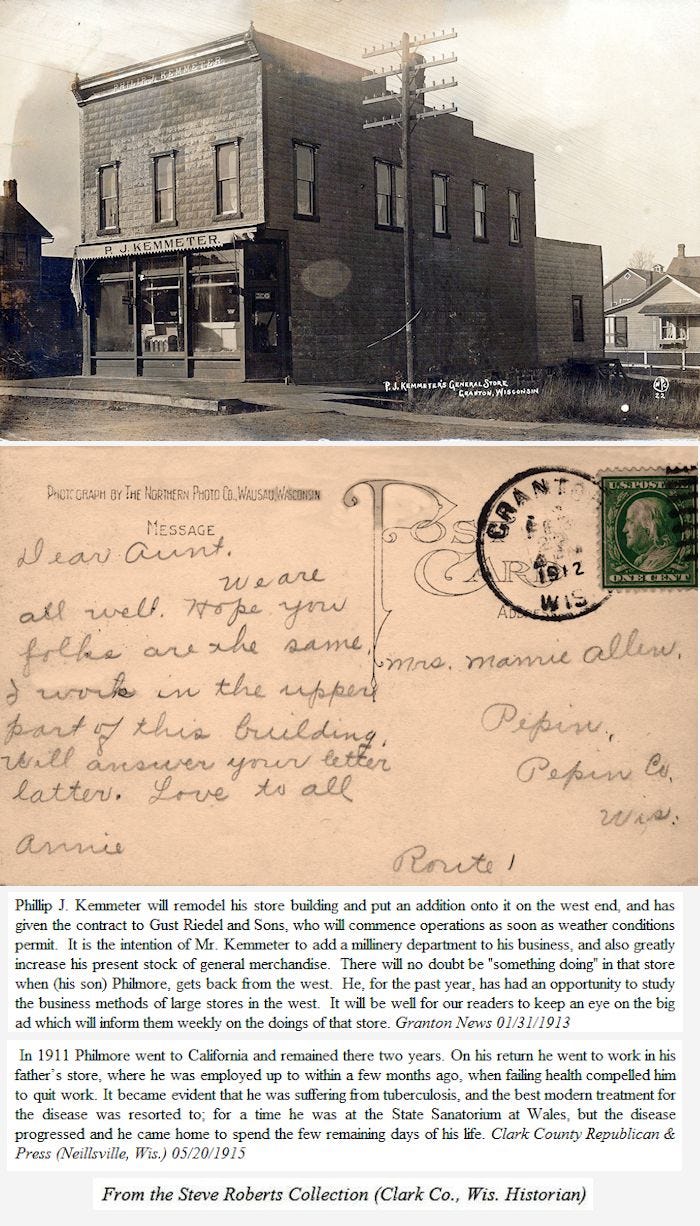 PHILIP J. KEMMETER
P. J. KEMMETER.
P. J. KEMMETER'S GENERAL STORE
GRANTON, WISCONSIN
N.P.Co.
22
PHOTOGRAPH BY THE NORTHERN PHOTO CO., WAUSAU, WISCONSIN
MESSAGE
POST CARD
ADDRESS
GRANTON
1912
WIS
U.S. POST
ONE CENT
Dear Aunt.
We are
all well. Hope you
folks are the same.
I work in the upper
part of this building.
Will answer your letter
latter. Love to all
Annie
Mrs. Mamie Allen.
Pepin,
Pepin Co,
Wis.
Route 1
Phillip J. Kemmeter will remodel his store building and put an addition onto it on the west end, and has
given the contract to Gust Riedel and Sons, who will commence operations as soon as weather conditions
permit. It is the intention of Mr. Kemmeter to add a millinery department to his business, and also greatly
increase his present stock of general merchandise. There will no doubt be "something doing" in that store
when (his son) Philmore, gets back from the west. He, for the past year, has had an opportunity to study
the business methods of large stores in the west. It will be well for our readers to keep an eye on the big
ad which will inform them weekly on the doings of that store. Granton News 01/31/1913
In 1911 Philmore went to California and remained there two years. On his return he went to work in his
father's store, where he was employed up to within a few months ago, when failing health compelled him
to quit work. It became evident that he was suffering from tuberculosis, and the best modern treatment for
the disease was resorted to; for a time he was at the State Sanatorium at Wales, but the disease
progressed and he came home to spend the few remaining days of his life. Clark County Republican &
Press (Neillsville, Wis.) 05/20/1915
From the Steve Roberts Collection (Clark Co., Wis. Historian)